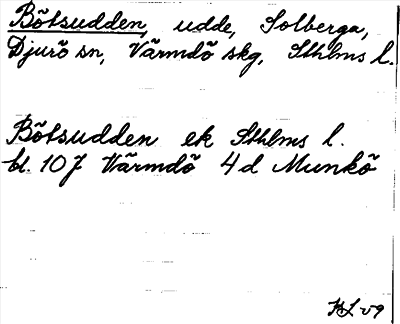 Båtsudden, udde, Solberga,
Djurö sn, Värmdö skg, Sthlms l.
Båtsudden ek Sthlms l.
bl. 107 Värmdö 4d Munkö